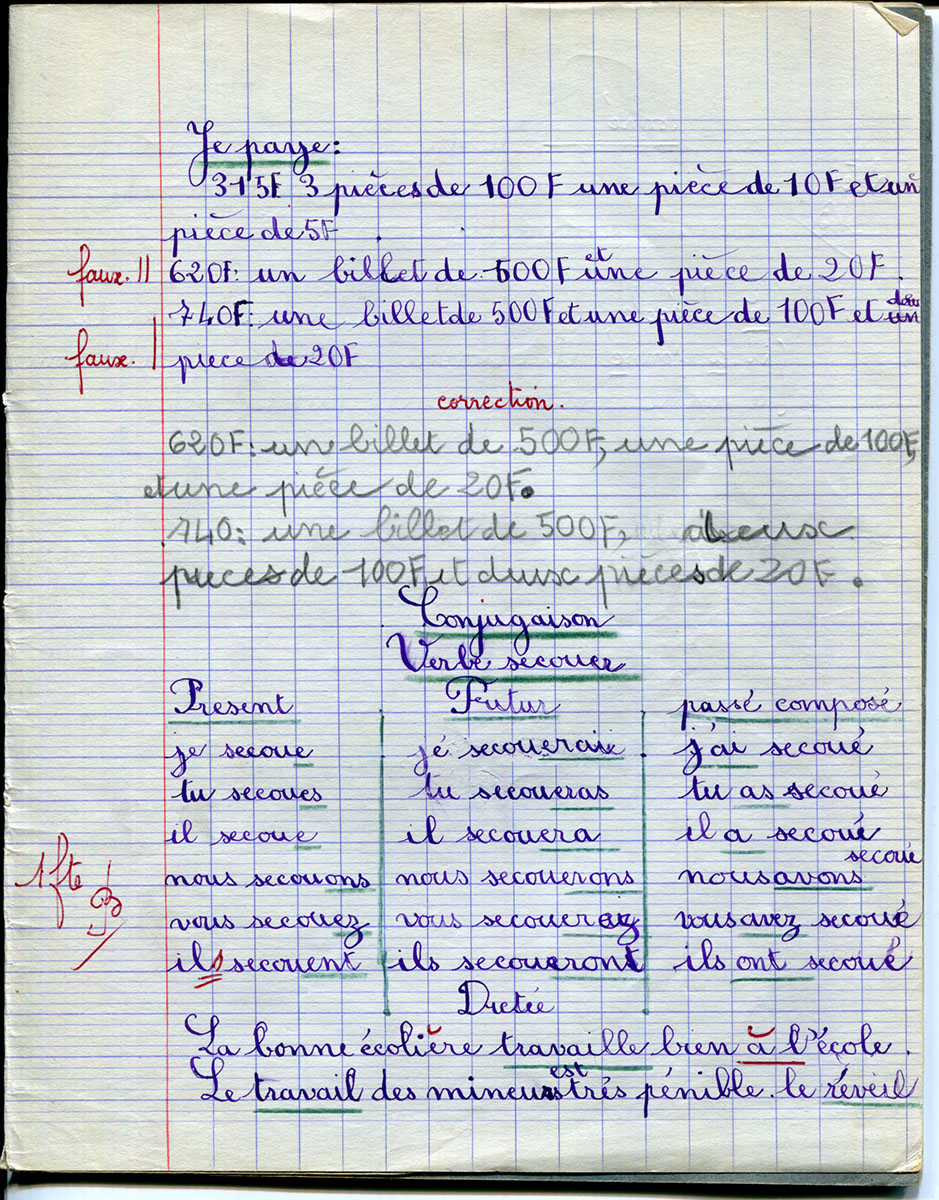 Je paye:
315F 3 pièces de 100F une pièce de 10F et un
pièce de 5F
faux. || 620F: un billet de 500F et une pièce de 20F.
740F: une billet de 500F et une pièce de 100F et deux un
faux. | piece de 20F
correction.
620F: une billet de 500F, une pièce de 100F,
et une pièce de 20F.
740: une billet de 500F, deux
pieces de 100F et deux pièces de 20F.
Conjugaison
Verbe secouer
Présent Futur passé composé
je secoue je secouerai j'ai secoué
tu secoues tu secoueras tu as secoué
il secoue il secouera il a secoué
1 fte nous secouons nous secouerons nous avons secoué
vous secouez vous secouerez vous avez secoué
ils secouent ils secoueront ils ont secoué
Dictée
La bonne écolière travaille bien à l'école.
Le travail des mineurs est trés pénible. le réveil